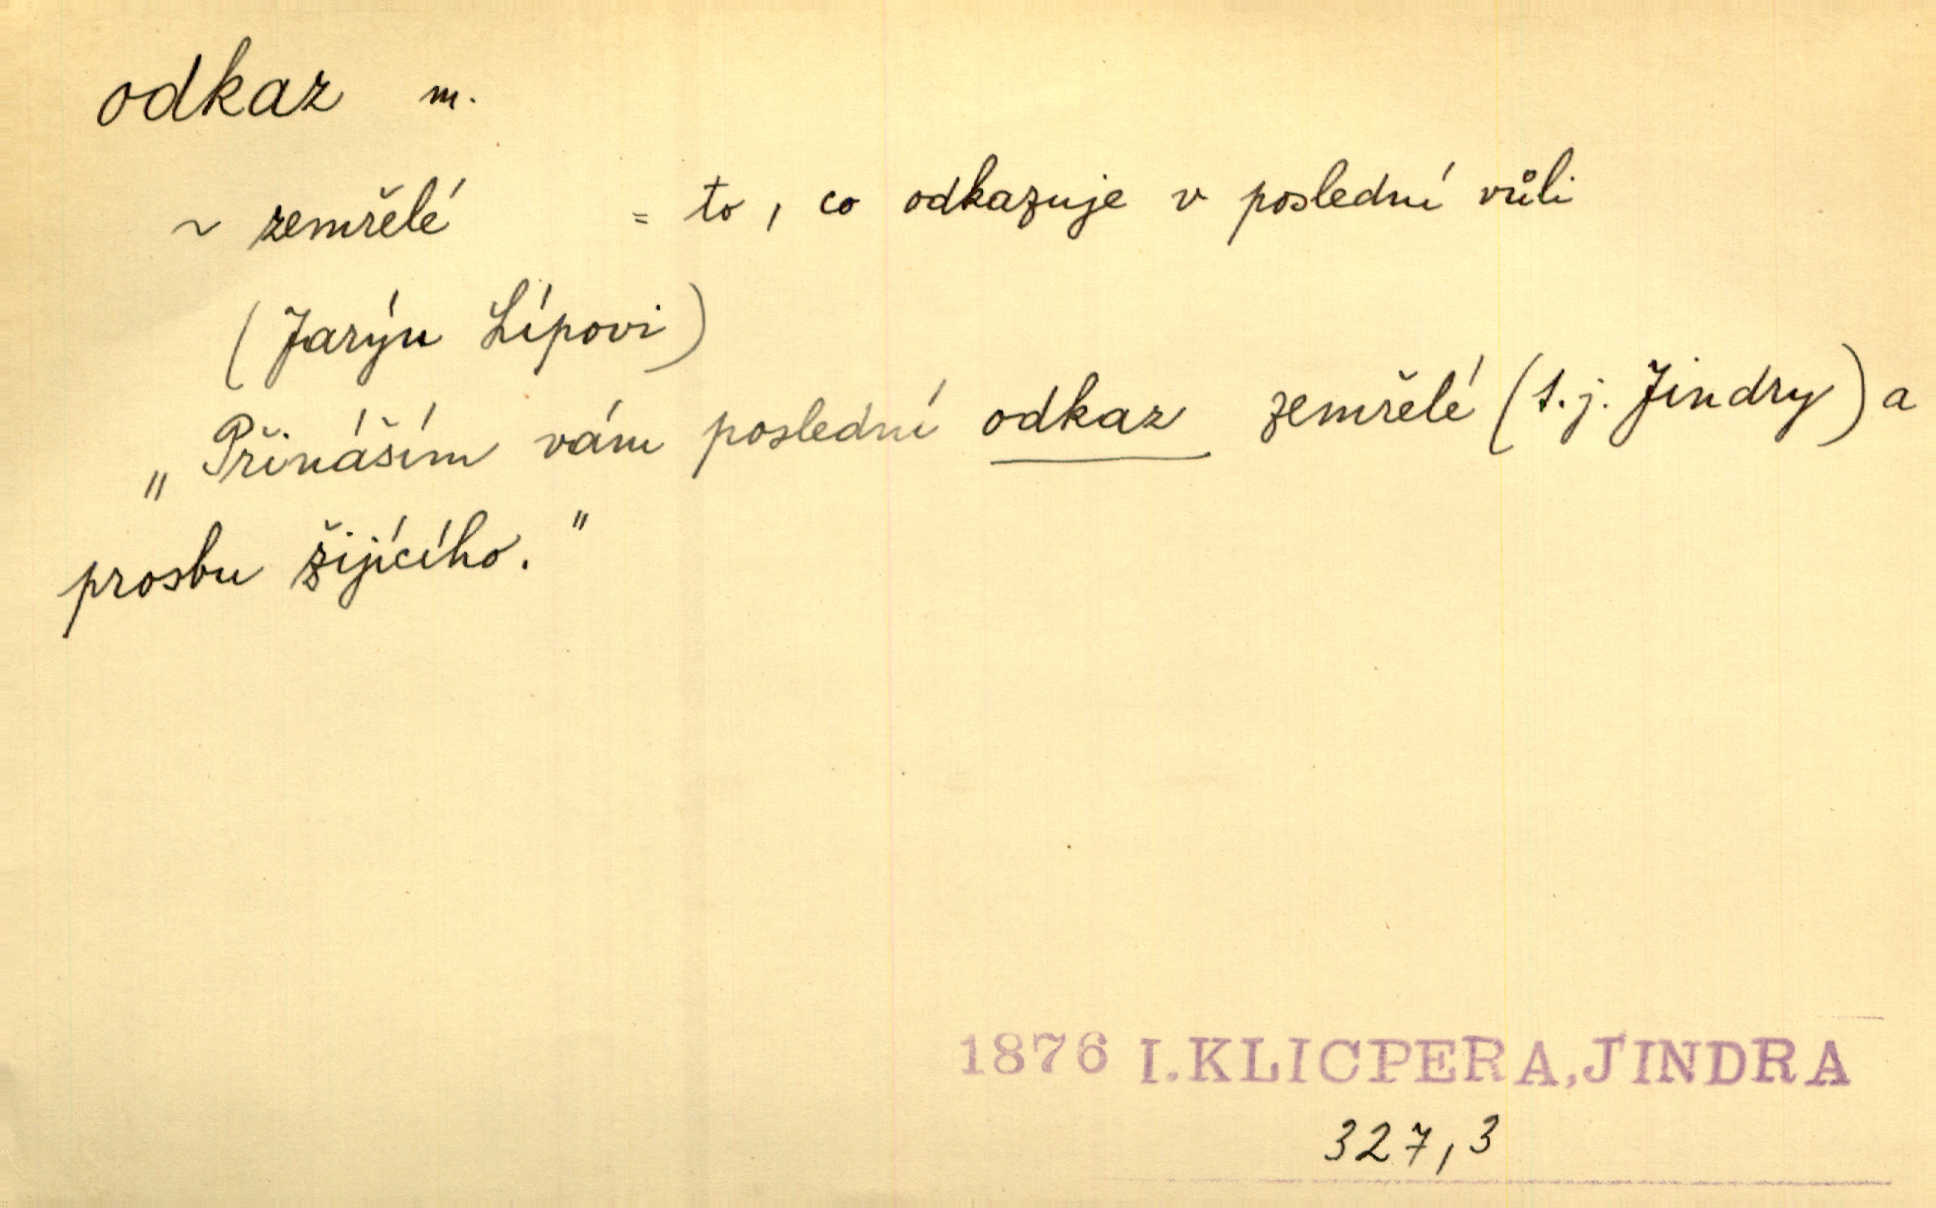 odkaz m.
~ zemřelé = to, co odkazuje v poslední vůli
(Jarýn Lípovi)
„Přináším vám poslední odkaz zemřelé (t.j. Jindry) a
prosbu žijícího."
1876 I.KLICPERA,JINDRA
327,3